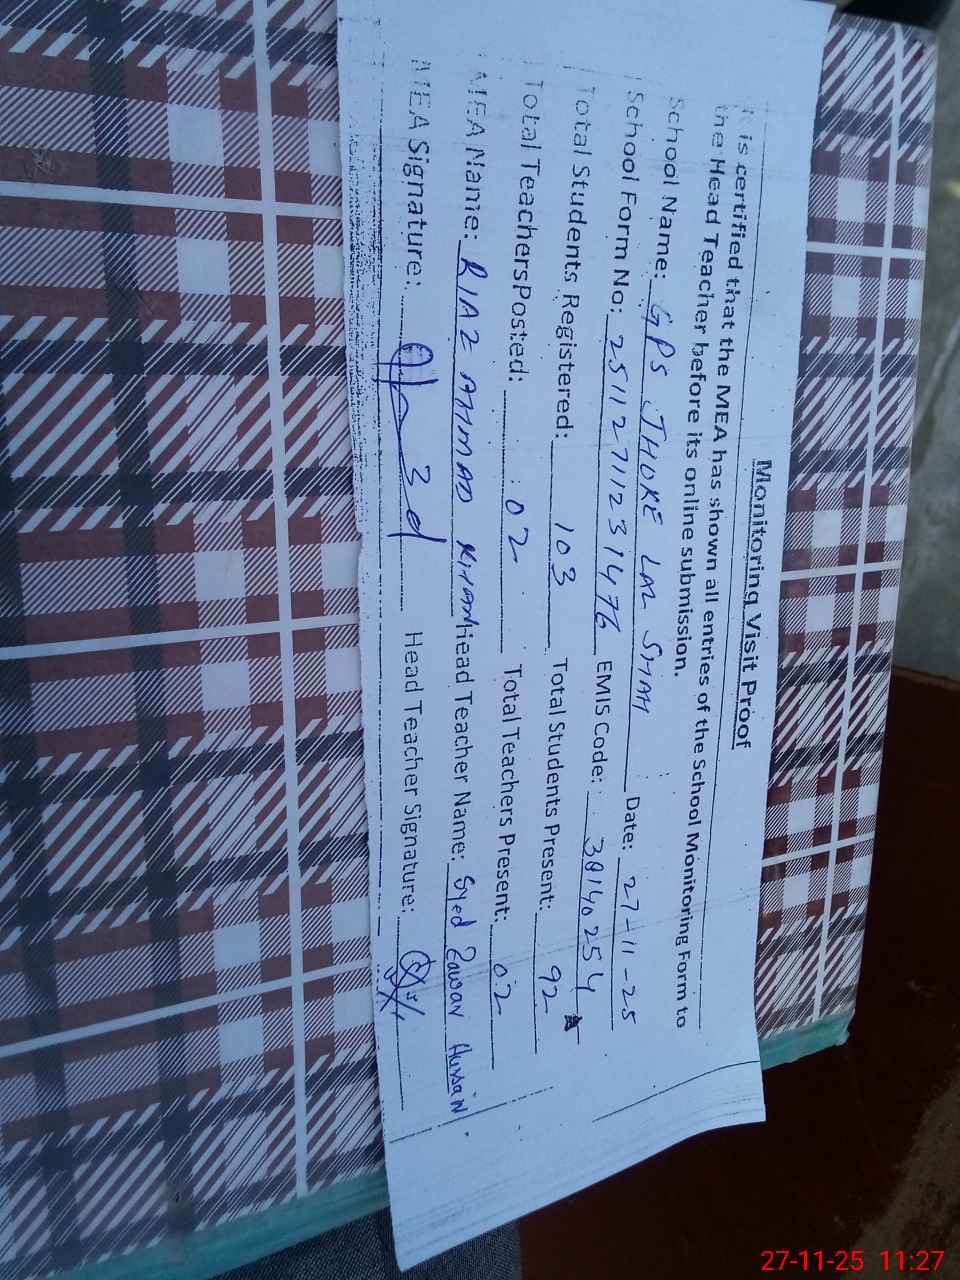 Monitoring Visit Proof
It is certified that the MEA has shown all entries of the School Monitoring Form to
the Head Teacher before its online submission.
School Name: GPS JHOKE LAL SHAH Date: 27-11-25
School Form No: 251127112314 76 EMIS Code: 38140254
Total Students Registered: 103 Total Students Present: 92
Total Teachers Posted: 02 Total Teachers Present: 02
MEA Name: RIAZ AHMAD KHAN Head Teacher Name: Syed Zawar Hussain
MEA Signature: Head Teacher Signature:
27-11-25 11:27